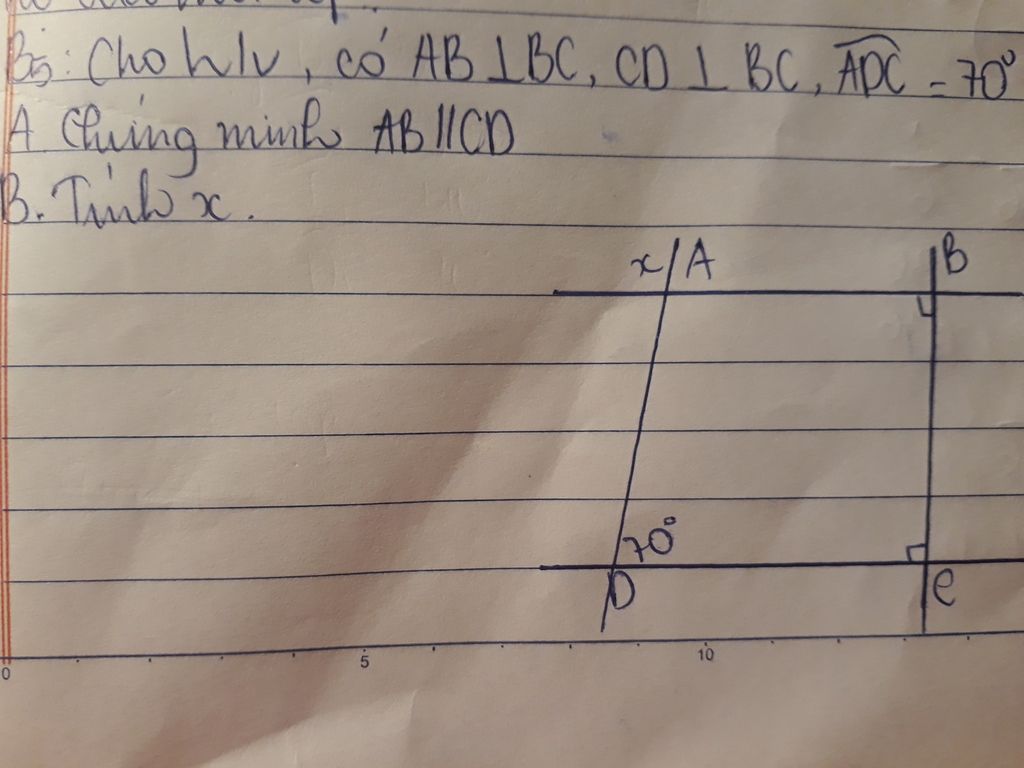 B5: Cho h/v, có AB ⊥ BC, CD ⊥ BC, ADC = 70°
A Chứng minh AB // CD
B. Tính x.
x A B
70°
D C
0 5 10